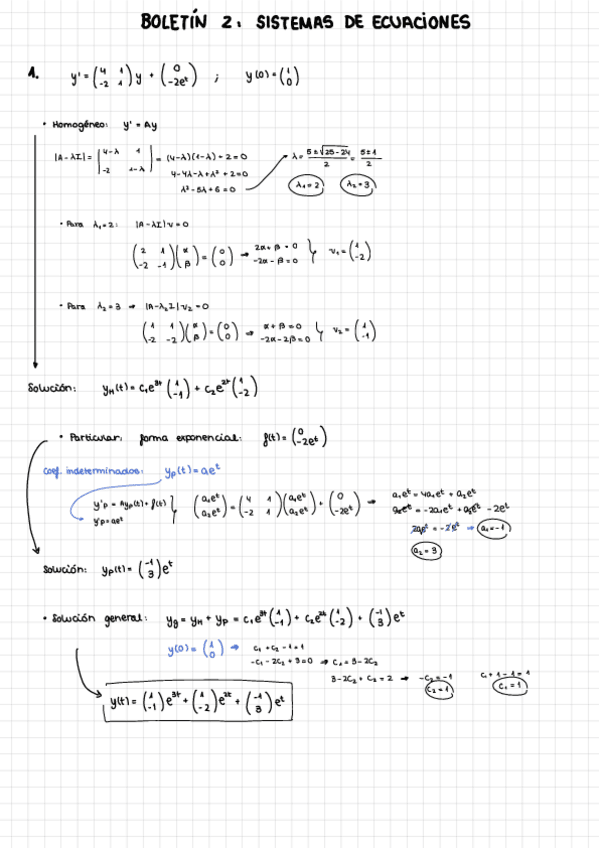 BOLETÍN 2: SISTEMAS DE ECUACIONES
1. y' = (4 1; -2 1) y + (0; -2eᵗ) ; y(0) = (1; 0)
• Homogéneo: y' = Ay
|A-λI| = |4-λ 1; -2 1-λ| = (4-λ)(1-λ) + 2 = 0 → λ = (5±√25-24)/2 = (5±1)/2
4-4λ-λ+λ²+2=0
λ²-5λ+6=0 λ₁=2 λ₂=3
• Para λ₁=2: |A-λI|v=0
(2 1; -2 -1)(α; β) = (0; 0) → 2α+β=0; -2α-β=0 } v₁ = (1; -2)
• Para λ₂=3 → |A-λ₂I|v₂=0
(1 1; -2 -2)(α; β) = (0; 0) → α+β=0; -2α-2β=0 } v₂ = (1; -1)
Solución: y_H(t) = c₁e³ᵗ (1; -1) + c₂e²ᵗ (1; -2)
• Particular: forma exponencial: f(t) = (0; -2eᵗ)
Coef. indeterminados: y_p(t) = aeᵗ
y'p = Ayp(t)+f(t); y'p = aeᵗ } (a₁eᵗ; a₂eᵗ) = (4 1; -2 1)(a₁eᵗ; a₂eᵗ) + (0; -2eᵗ) →
a₁eᵗ = 4a₁eᵗ + a₂eᵗ
a₂eᵗ = -2a₁eᵗ + a₂eᵗ - 2eᵗ
2a₁eᵗ = -2eᵗ → a₁=-1
a₂=3
Solución: yp(t) = (-1; 3) eᵗ
• Solución general: yg = yH + yp = c₁e³ᵗ (1; -1) + c₂e²ᵗ (1; -2) + (-1; 3) eᵗ
y(0) = (1; 0) → c₁ + c₂ - 1 = 1
-c₁ - 2c₂ + 3 = 0 → c₁ = 3-2c₂
3-2c₂ + c₂ = 2 → -c₂ = -1 c₁ + 1 - 1 = 1
c₂=1 c₁=1
y(t) = (1; -1) e³ᵗ + (1; -2) e²ᵗ + (-1; 3) eᵗ